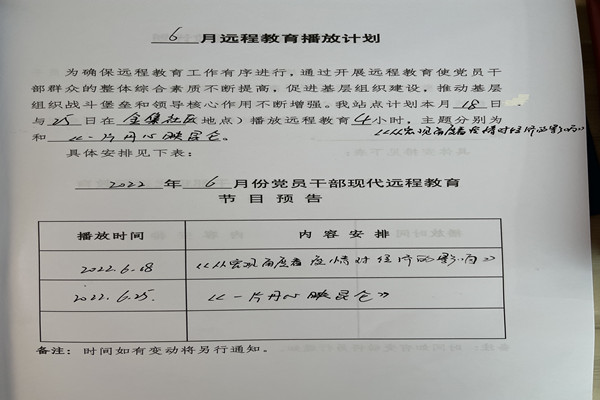 6月远程教育播放计划
为确保远程教育工作有序进行，通过开展远程教育使党员干
部群众的整体综合素质不断提高，促进基层组织建设，推动基层
组织战斗堡垒和领导核心作用不断增强。我站点计划本月18日
与25日在金集社区（地点）播放远程教育4小时，主题分别为
《从宏观角度看疫情对经济的影响》
和《一片丹心映昆仑。
具体安排见下表：
2022年6月份党员干部现代远程教育
节目预告
播放时间 内容安排
2022.6.18 《从宏观角度看疫情对经济的影响》
2022.6.25. 《一片丹心映昆仑》
备注：时间如有变动将另行通知。